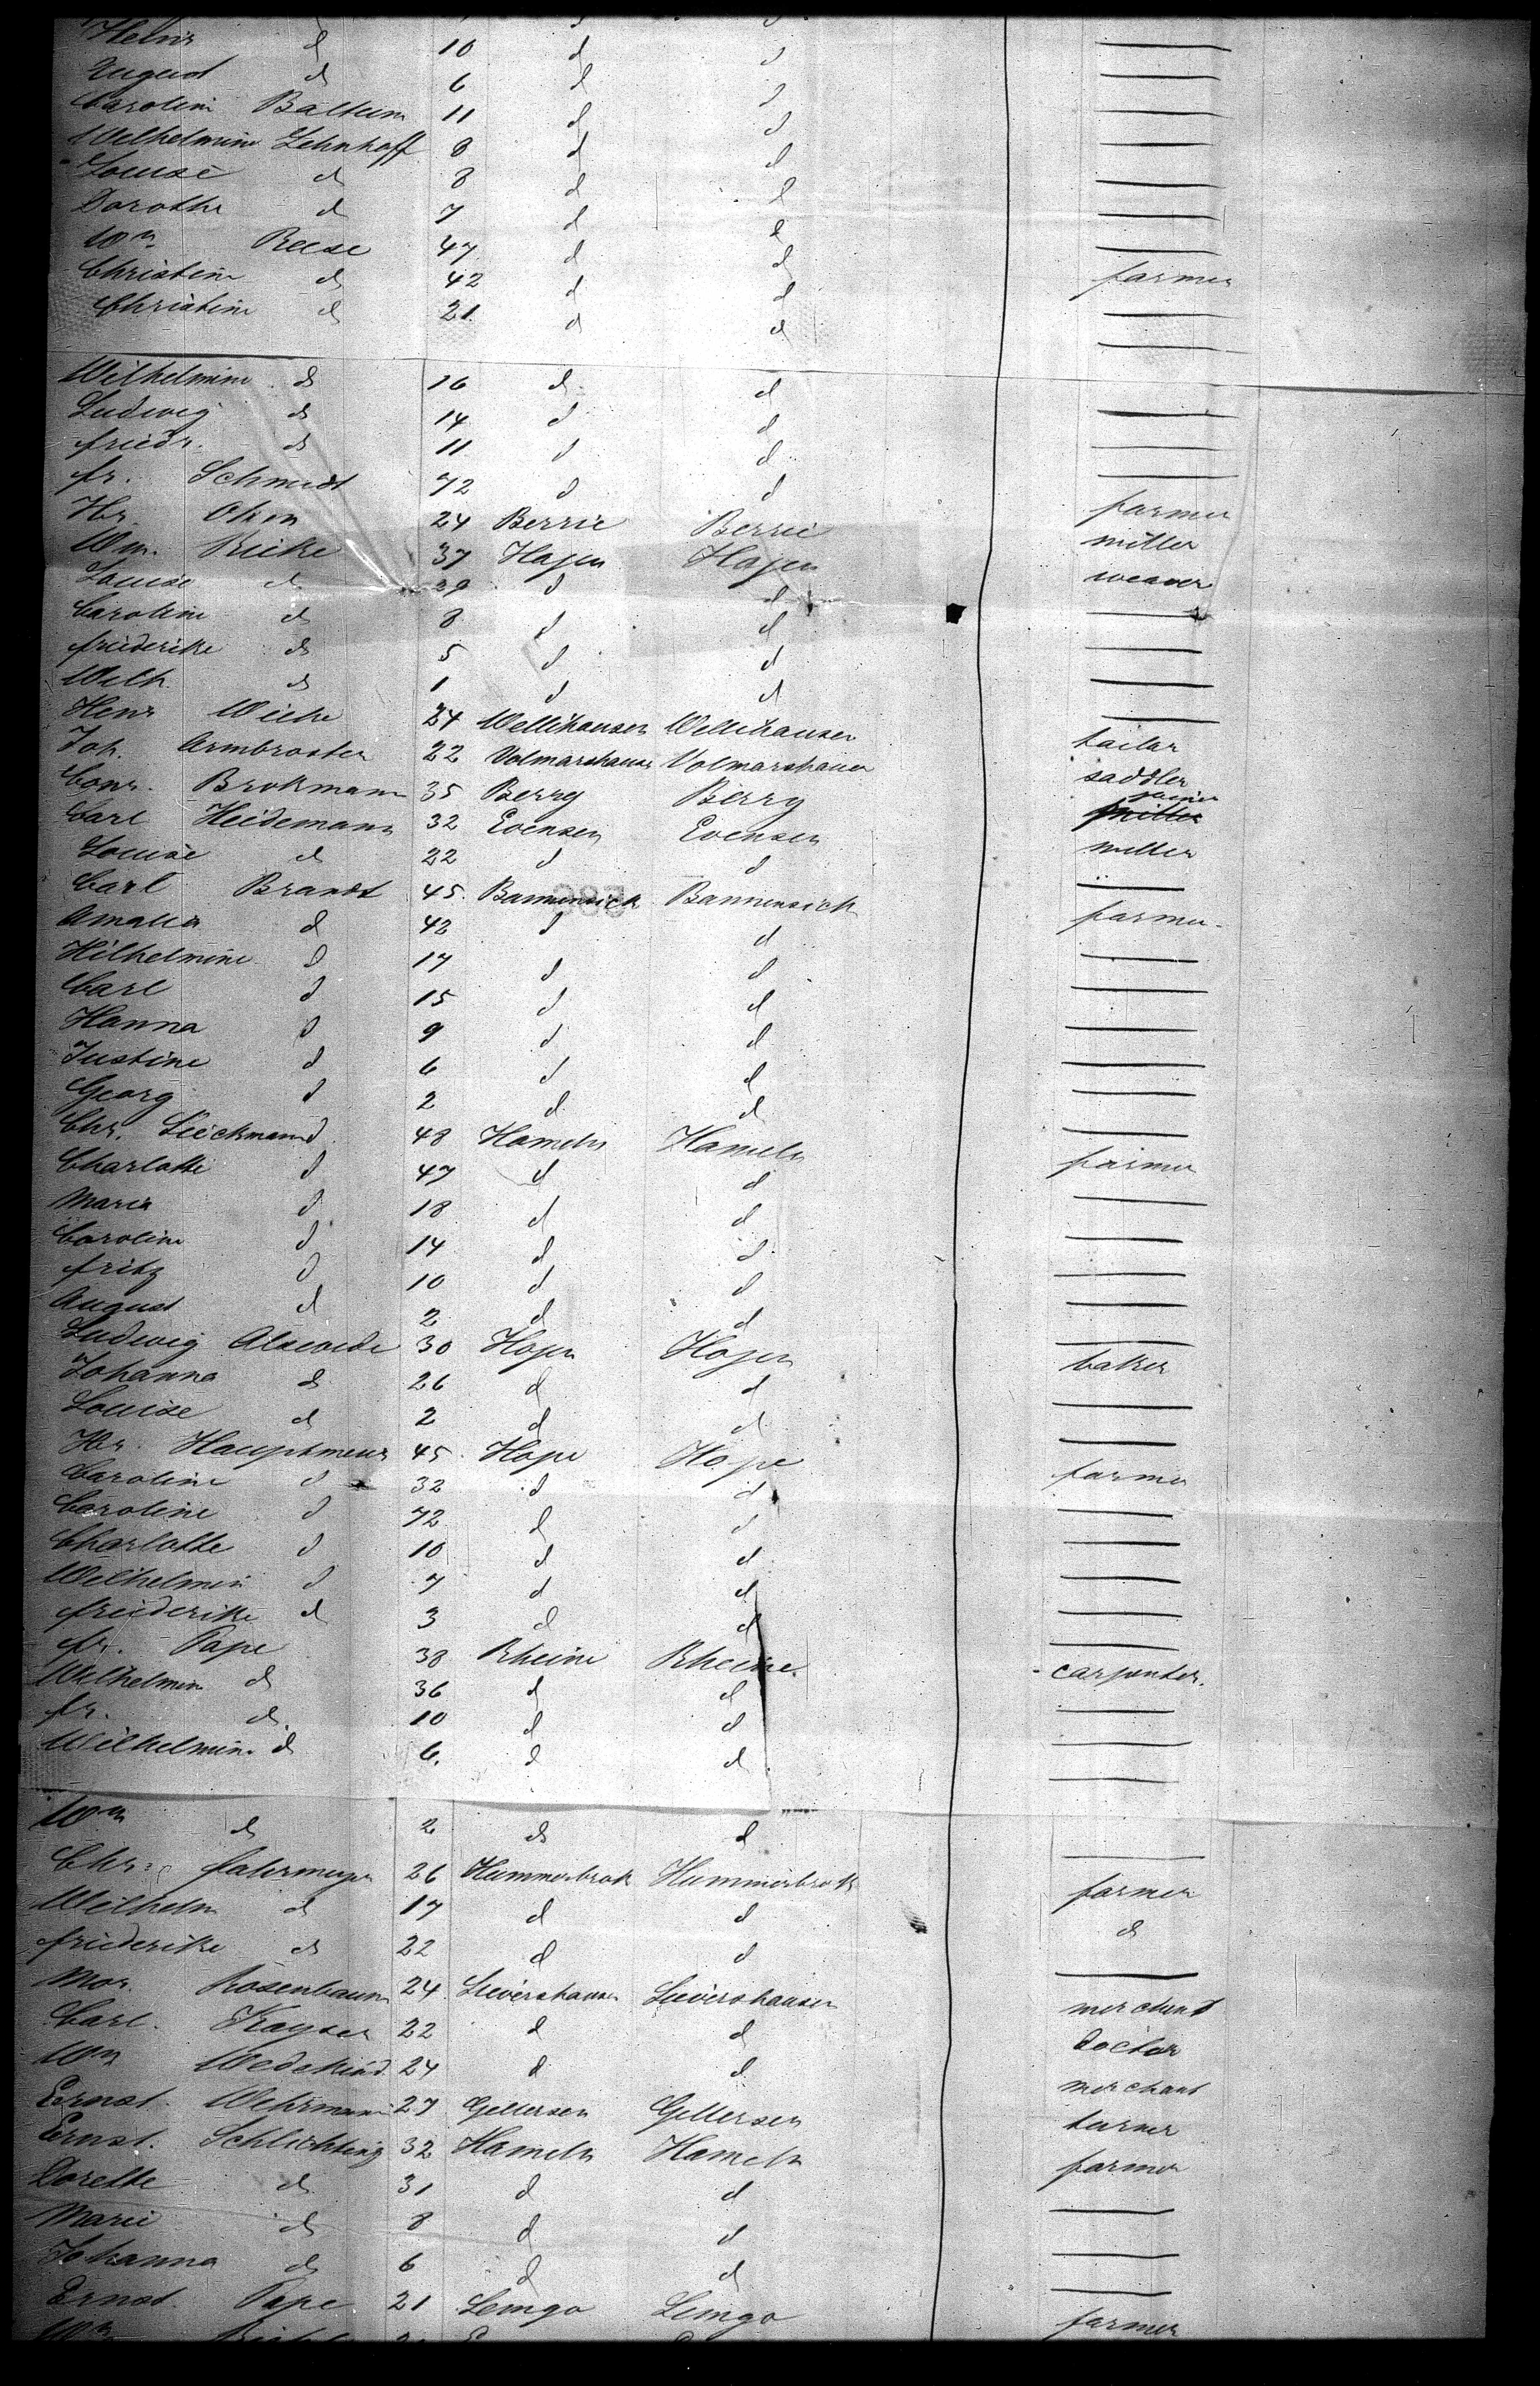 Henr d 10 d d —
August d 6 d d —
Carolin Balthim 11 d d —
Wilhelmine Lehnhoff 8 d d —
Louise d 8 d d —
Dorothe d 7 d d —
Wm Reese 47 d d farmer
Christine d 42 d d —
Christine d 21 d d —
Wilhelmine d 16 d d —
Ludwig d 14 d d —
friedr. d 11 d d —
fr. Schmidt 72 d d farmer
Hr. Ohm 24 Berrie Berrie miller
Wm. Ricke 37 Hagen Hagen weaver
Louise d 29 d d —
Caroline d 8 d d —
friederike d 5 d d —
Wilh. d 1 d d —
Henr Wiehe 24 Wellihausen Wellihausen tailor
Joh. Armbroster 22 Volmarshausen Volmarshausen saddler
Conr. Brokmann 35 Berry Berry
Carl Heidemann 32 Evensen Evensen miller
Louise d 22 d d —
Carl Brandt 45 Bannensick Bannensick farmer
Amalia d 42 d d —
Wilhelmine d 17 d d —
Carl d 15 d d —
Hanna d 9 d d —
Justine d 6 d d —
Georg d 2 d d —
Chr. Lieckmann 48 Hameln Hameln farmer
Charlotte d 47 d d —
Maria d 18 d d —
Caroline d 14 d d —
fritz d 10 d d —
August d 2 d d —
Ludwig 30 Hagen Hagen baker
Johanna d 26 d d —
Louise d 2 d d —
Hr. Hauptmeier 45 Hope Hope farmer
Caroline d 32 d d —
Caroline d 72 d d —
Charlotte d 10 d d —
Wilhelmin d 7 d d —
friederike d 3 d d —
fr. Pape 38 Rheine Rheine carpenter.
Wilhelmin d 36 d d —
fr. d. 10 d d —
Wilhelmin d 6. d d —
Wm d 2 d d —
Chr. fahrmeyer 26 Hummerbrok Hummerbrok farmer
Wilhelm d 17 d d d
friederike d 22 d d —
Mor. Rosenbaum 24 Lievershausen Lievershausen merchant
Carl. Kayser 22 d d doctor
Wm Wedekind 24 d d merchant
Ernst. Wehrmann 27 Gellersen Gellersen turner
Ernst. Schlichting 32 Hameln Hameln farmer
Dorette d 31 d d —
Marie d 8 d d —
Johanna d 6 d d —
Ernst Pape 21 Lemgo Lemgo farmer